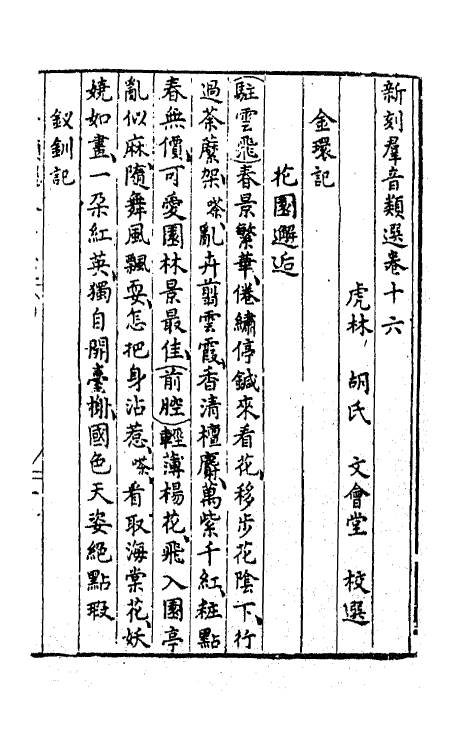 新刻羣音類選卷十六
虎林 胡氏 文會堂 校選
金環記
花園邂逅
駐雲飛春景繁華、倦繡停鍼來看花、移步花陰下、行
過荼䕷架、嗏亂卉翦雲霞、香清檀麝、萬紫千紅、粧點
春無價、可愛園林景最佳、前腔輕薄楊花、飛入園亭
亂似麻、隨舞風飄耍、怎把身沾惹、嗏看取海棠花、妖
嬈如畫、一朶紅英、獨自開臺榭、國色天姿絕點瑕
釵釧記